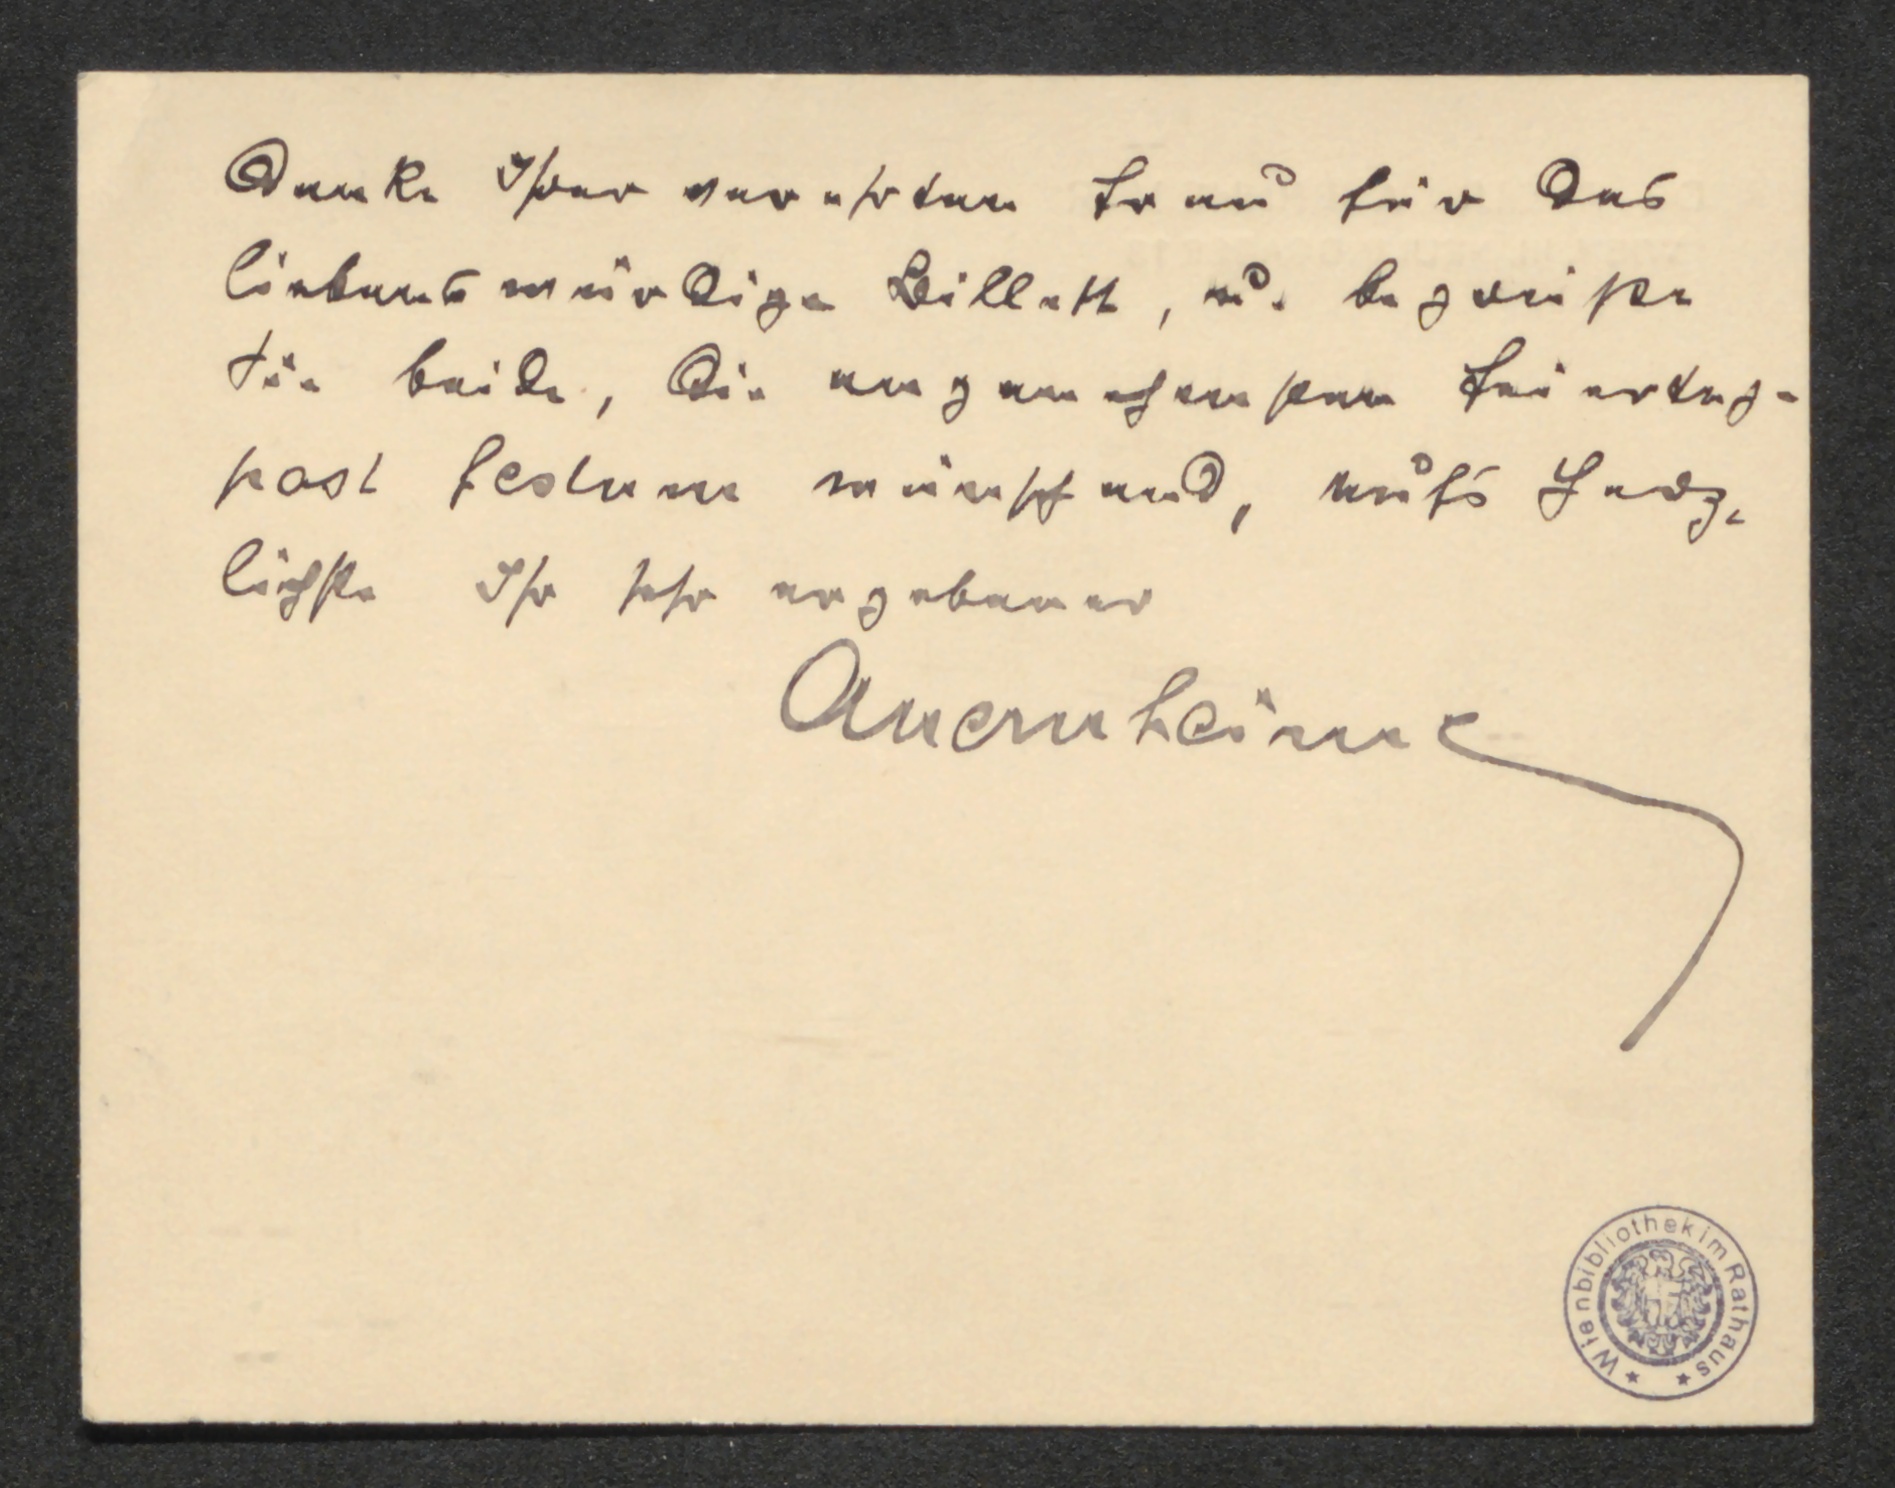 danke Ihrer verehrten Frau für das
liebenswürdige Billett, u. begrüße
Sie beide, die angenehmsten Feiertag-
post festum wünschend, aufs Herz-
lichste Ihr sehr ergebener
Auernheimer
Wienbibliothek im Rathaus